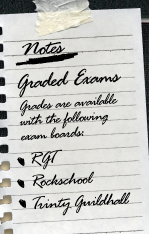 Notes
Graded Exams
Grades are available
with the following
exam boards:
RGT
Rockschool
Trinty Guildhall